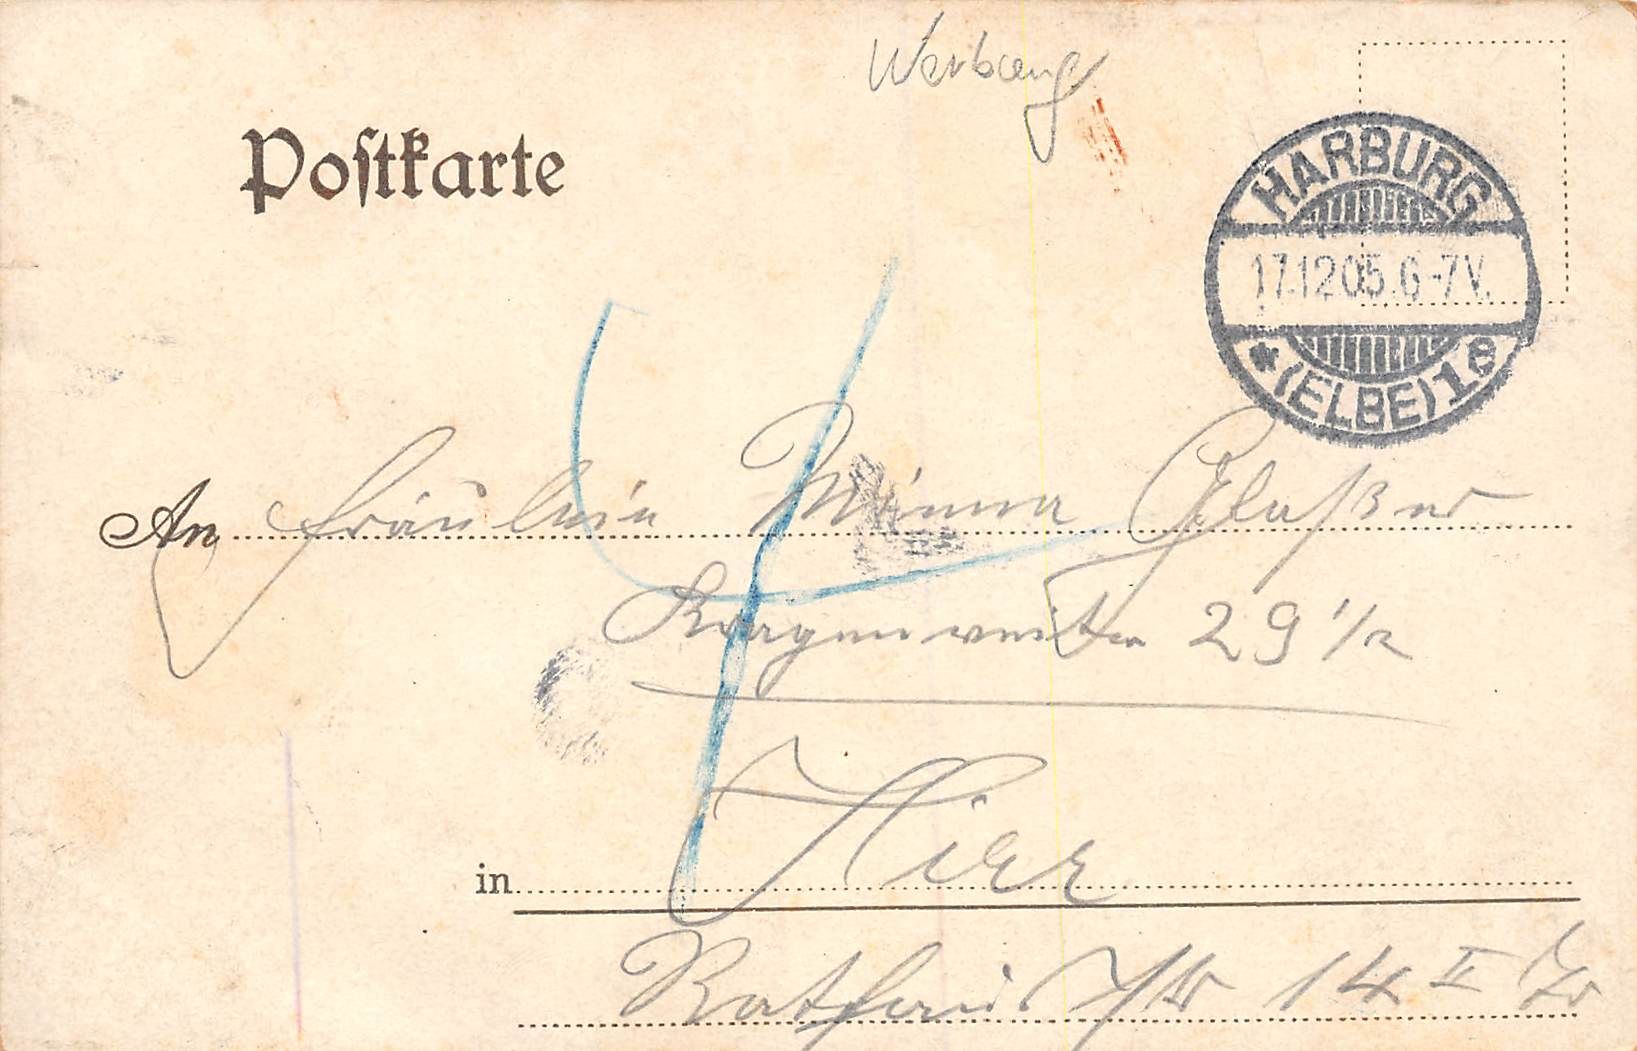 Werbung
Postkarte
HARBURG
17.12.05.6-7V.
* (ELBE) 1e
An Fräulein Minna Glaßer
Kragenweite 29 1/2
in Hier
Rathausstr 14 II